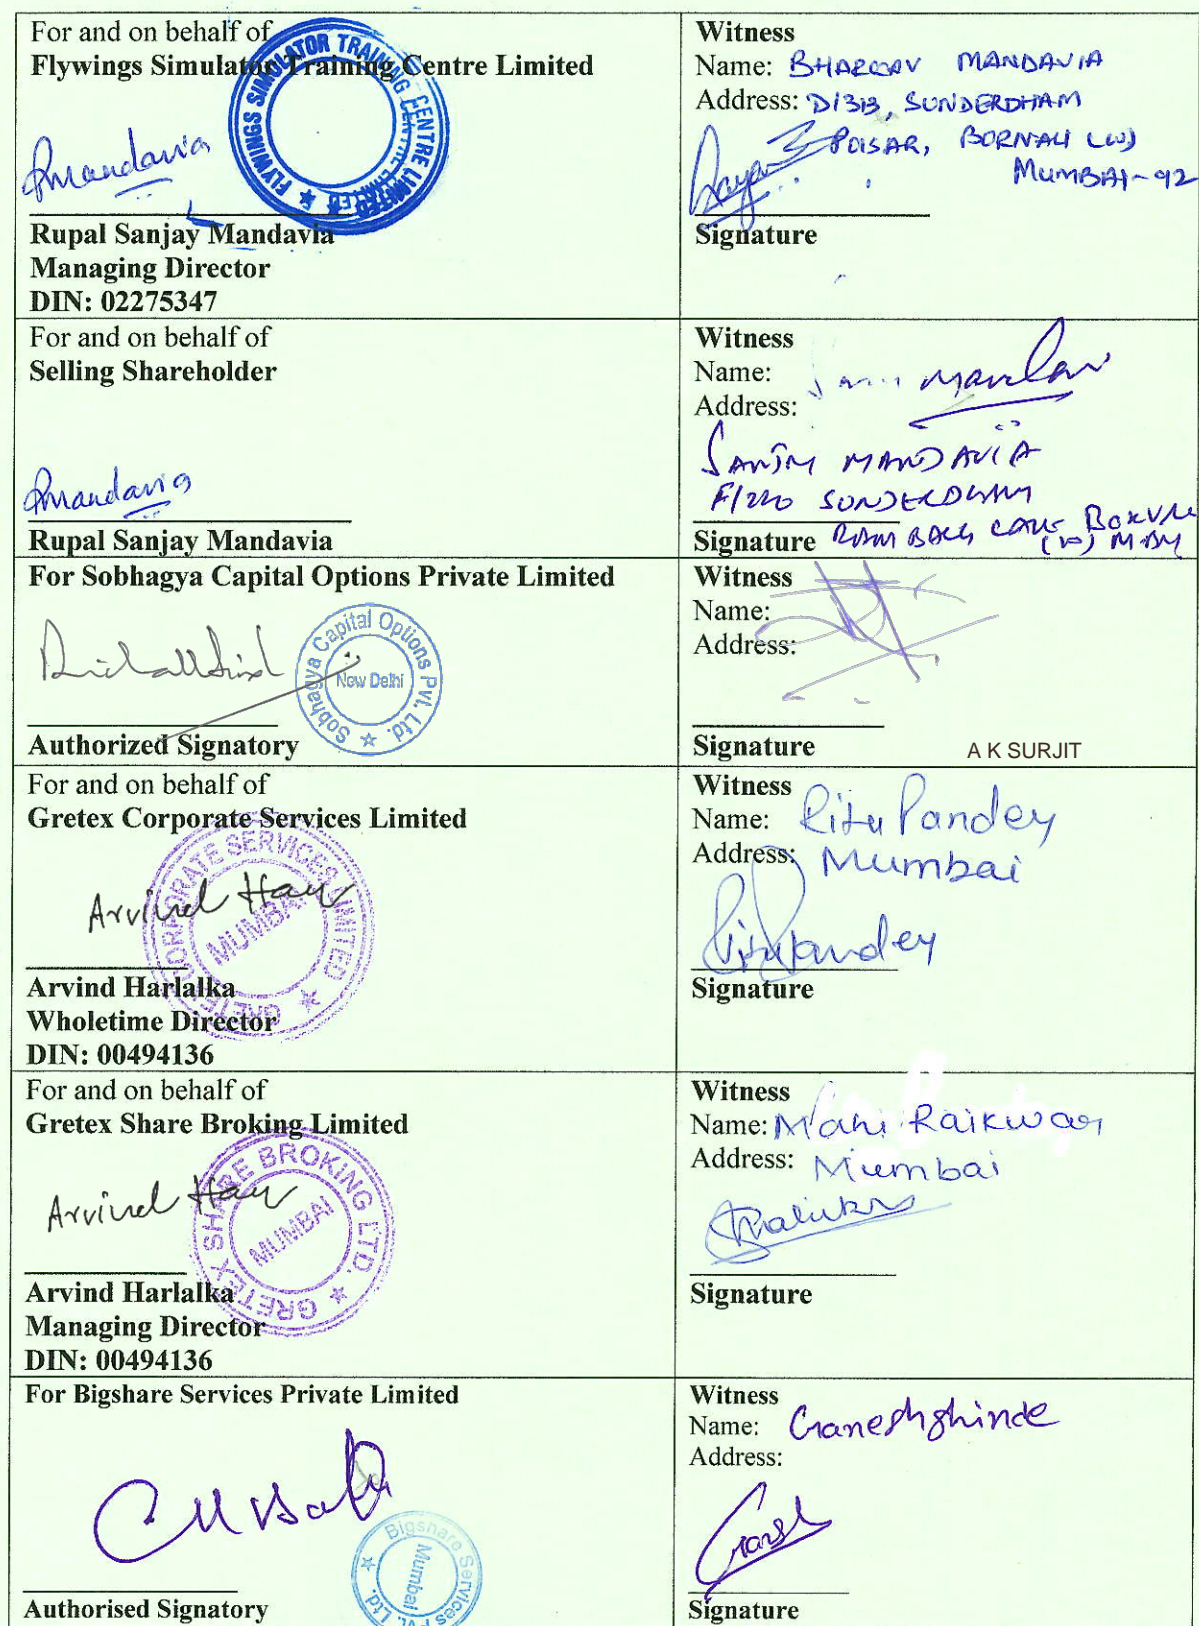 For and on behalf of
Flywings Simulator Training Centre Limited
FLYWINGS SIMULATOR TRAINING CENTRE LIMITED
Rmandavia
Rupal Sanjay Mandavia
Managing Director
DIN: 02275347
Witness
Name: BHARGAV MANDAVIA
Address: D/313, SUNDERDHAM
POISAR, BORIVALI (W)
MUMBAI-92
Signature
For and on behalf of
Selling Shareholder
Rmandavia
Rupal Sanjay Mandavia
Witness
Name:
Address:
SANJAY MANDAVIA
F/220 SUNDERDHAM
Signature
For Sobhagya Capital Options Private Limited
Sobhagya Capital Options Pvt. Ltd.
New Delhi
Authorized Signatory
Witness
Name:
Address:
Signature
A K SURJIT
For and on behalf of
Gretex Corporate Services Limited
GRETEX CORPORATE SERVICES LIMITED
MUMBAI
Arvind Har
Arvind Harlalka
Wholetime Director
DIN: 00494136
Witness
Name: Ritu Pandey
Address: Mumbai
Ritu Pandey
Signature
For and on behalf of
Gretex Share Broking Limited
GRETEX SHARE BROKING LTD.
MUMBAI
Arvind Har
Arvind Harlalka
Managing Director
DIN: 00494136
Witness
Name: Mahi Raikwar
Address: Mumbai
Signature
For Bigshare Services Private Limited
Bigshare Services Pvt. Ltd.
Mumbai
Authorised Signatory
Witness
Name: Ganesh Shinde
Address:
Ganesh
Signature